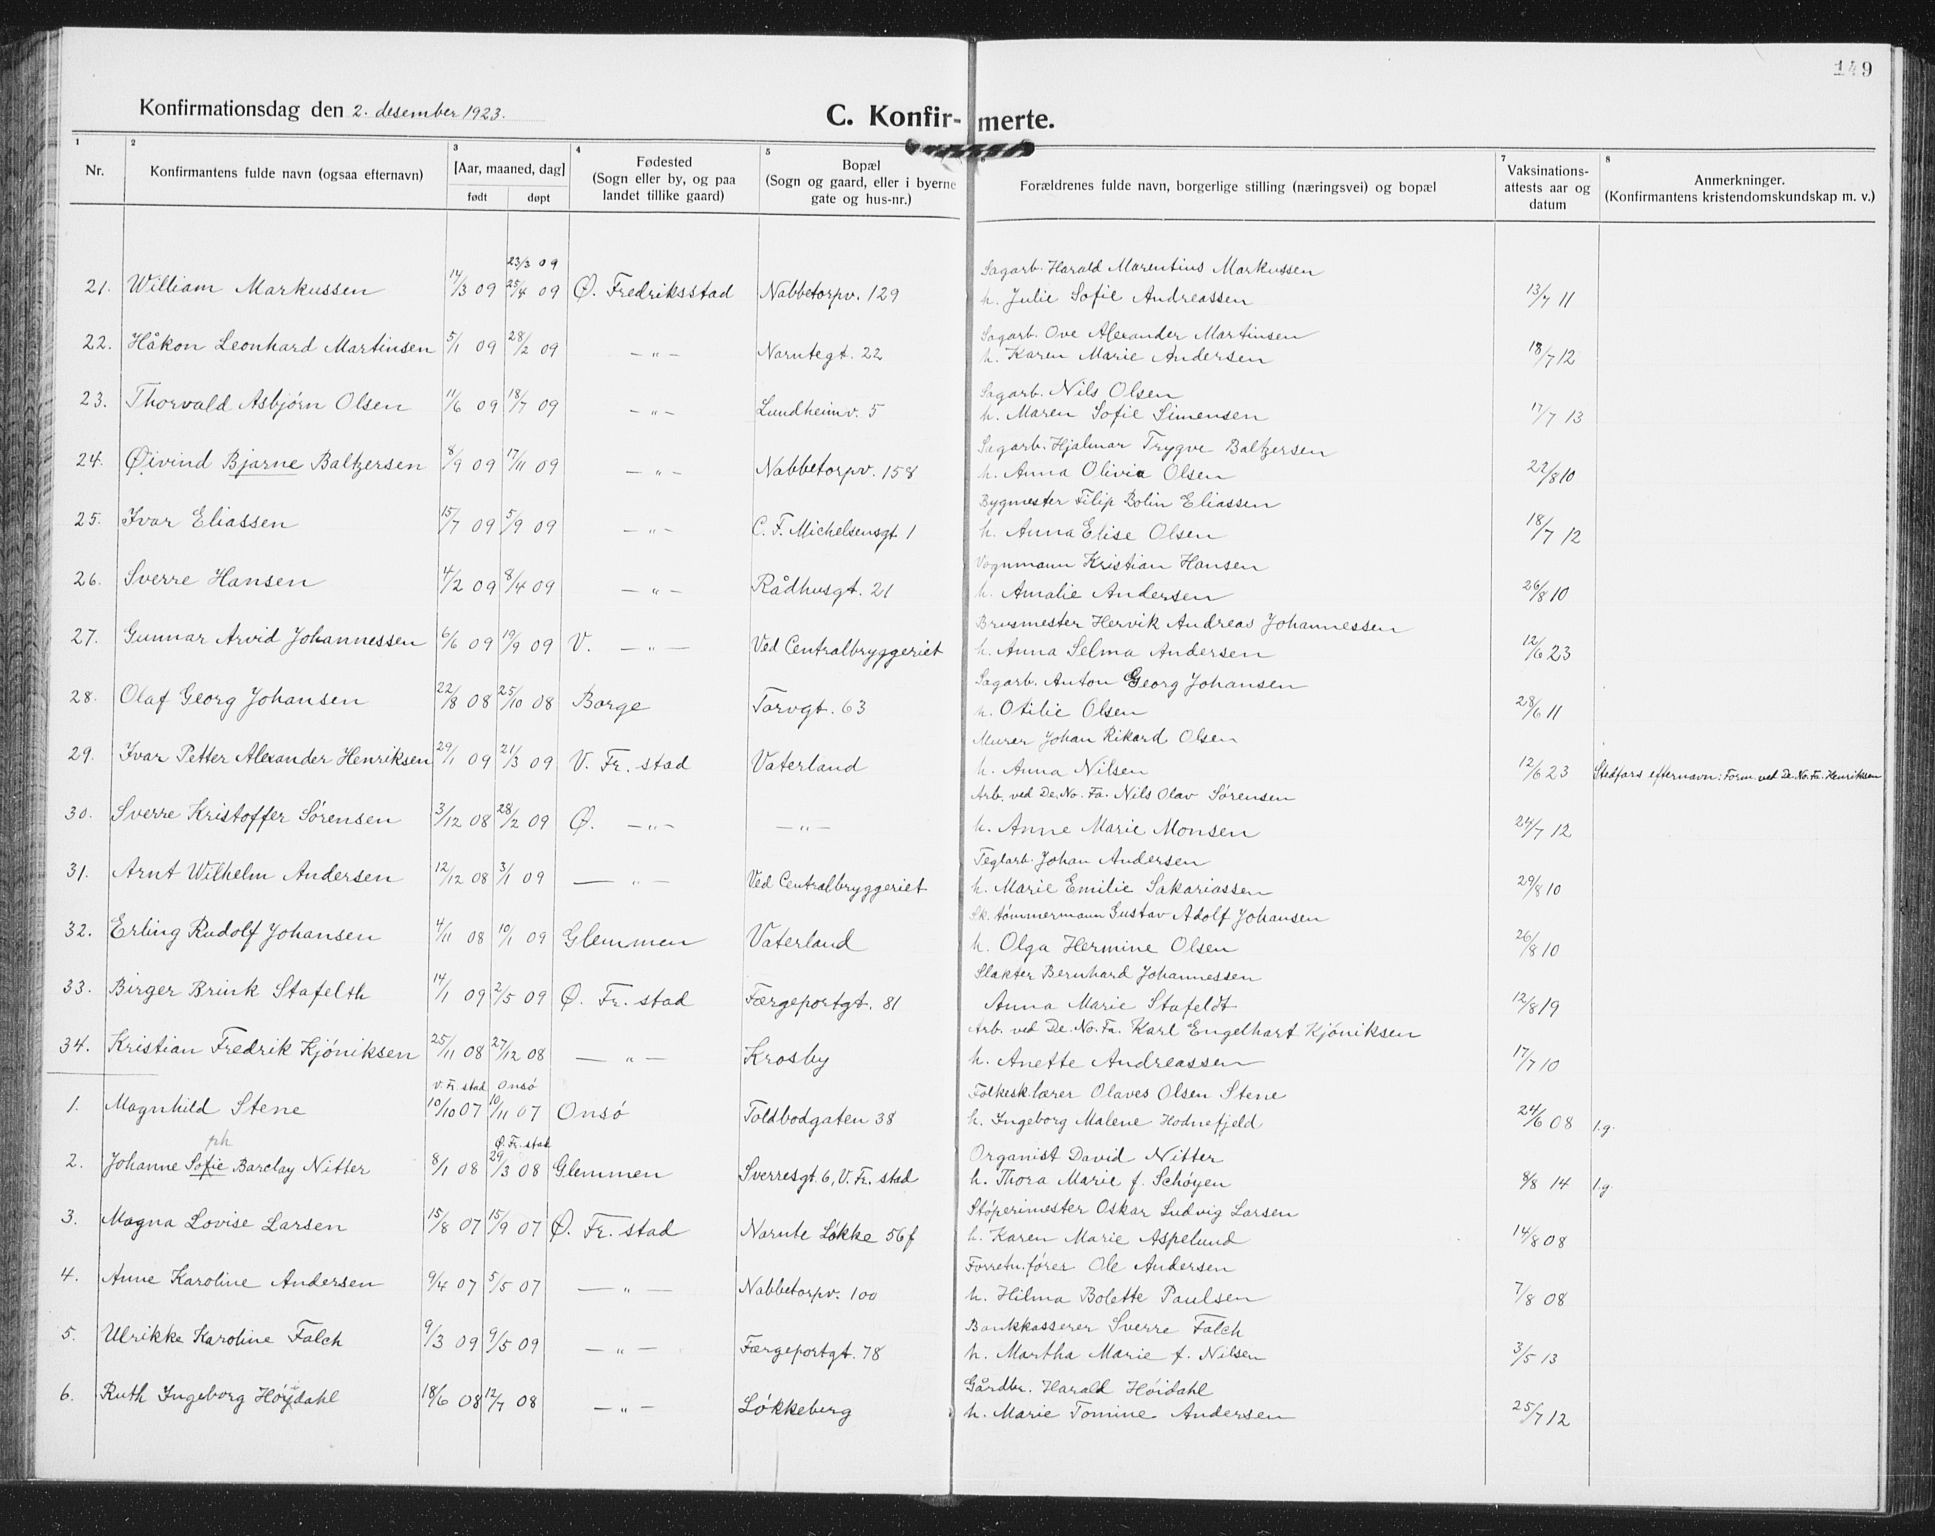 149
Konfirmationsdag den 2. desember 1923.
C. Konfir-merte.
1 2 3 4 5 7 8
Nr. Konfirmantens fulde navn (ogsaa efternavn) [Aar, maaned, dag] født døpt Fødested (Sogn eller by, og paa landet tillike gaard) Bopæl (Sogn og gaard, eller i byerne gate og hus-nr.) Forældrenes fulde navn, borgerlige stilling (næringsvei) og bopæl Vaksinations-attests aar og datum Anmerkninger. (Konfirmantens kristendomskundskap m. v.)
23/3 09 Sagarb. Harald Marentius Markussen
21. William Markussen 14/3 09 25/4 09 Ø. Fredriksstad Nabbetorpv. 129 h. Julie Sofie Andreassen 13/7 11
Sagarb. Ove Alexander Martinsen
22. Håkon Leonhard Martinsen 5/1 09 28/2 09 —„— Narntegt. 22 h. Karen Marie Andersen 18/7 12
Sagarb. Nils Olsen
23. Thorvald Asbjörn Olsen 11/6 09 18/7 09 —„— Lundheimv. 5 h. Maren Sofie Simensen 17/7 13
Sagarb. Hjalmar Trygve Baltzersen
24. Øivind Bjarne Baltzersen 8/9 09 17/11 09 —„— Nabbetorpv. 158 h. Anna Olivia Olsen 22/8 10
Bygmester Filip Bolin Eliassen
25. Ivar Eliassen 15/7 09 5/9 09 —„— C. F. Michelsensgt. 1 h. Anna Elise Olsen 18/7 12
Vognmann Kristian Hansen
26. Sverre Hansen 4/2 09 8/4 09 —„— Rådhusgt. 21 h. Amalie Andersen 26/8 10
Brusmester Hervik Andreas Johannessen
27. Gunnar Arvid Johannessen 6/6 09 19/9 09 V. —„— Ved Centralbryggeriet h. Anna Selma Andersen 12/6 23
Sagarb. Anton Georg Johansen
28. Olaf Georg Johansen 22/8 08 25/10 08 Borge Torvgt. 63 h. Otilie Olsen 28/6 11
Murer Johan Rikard Olsen
29. Ivar Petter Alexander Henriksen 29/1 09 21/3 09 V. Fr. stad Vaterland h. Anna Nilsen 12/6 23 Stedfars efternavn: Form. ved De. No. Fa. Henriksen
Arb. ved De. No. Fa. Nils Olav Sørensen
30. Sverre Kristoffer Sörensen 3/12 08 28/2 09 Ø. —„— —„— h. Anne Marie Monsen 24/7 12
Teglarb. Johan Andersen
31. Arnt Wilhelm Andersen 12/12 08 3/1 09 —„— Ved Centralbryggeriet h. Marie Emilie Sakariassen 29/8 10
Sk. tömmermann Gustav Adolf Johansen
32. Erling Rudolf Johansen 4/11 08 10/1 09 Glemmen Vaterland h. Olga Hermine Olsen 26/8 10
Slakter Bernhard Johannessen
33. Birger Brink Stafelth 14/1 09 2/5 09 Ø. Fr. stad Færgeportgt. 81 Anna Marie Stafeldt 12/8 19
Arb. ved De. No. Fa. Karl Engelhart Kjöniksen
34. Kristian Fredrik Kjöniksen 25/11 08 27/12 08 —„— Krosby h. Anette Andreassen 17/7 10
V. Fr. stad Onsö Folkesk.lærer Olaves Olsen Stene
1. Magnhild Stene 10/10 07 10/11 07 Onsö Toldbodgaten 38 h. Ingeborg Malene Hodnefjeld 24/6 08 1. g.
ph Ø. Fr. stad Organist David Nitter
2. Johanne Sofie Barclay Nitter 8/1 08 29/3 08 Glemmen Sverresgt. 6, V. Fr. stad h. Thora Marie f. Schöyen 8/8 14 1. g.
Støperimester Oskar Ludvig Larsen
3. Magna Lovise Larsen 15/8 07 15/9 07 Ø. Fr. stad Narnte Løkke 56f h. Karen Marie Aspelund 14/8 08
Forretn.förer Ole Andersen
4. Anne Karoline Andersen 9/4 07 5/5 07 —„— Nabbetorpv. 100 h. Hilma Bolette Paulsen 7/8 08
Bankkasserer Sverre Falch
5. Ulrikke Karoline Falch 9/3 09 9/5 09 —„— Færgeportgt. 78 h. Martha Marie f. Nilsen 3/5 13
Gårdbr. Harald Höidahl
6. Ruth Ingeborg Höydahl 18/6 08 12/7 08 —„— Løkkeberg h. Marie Tomine Andersen 25/7 12